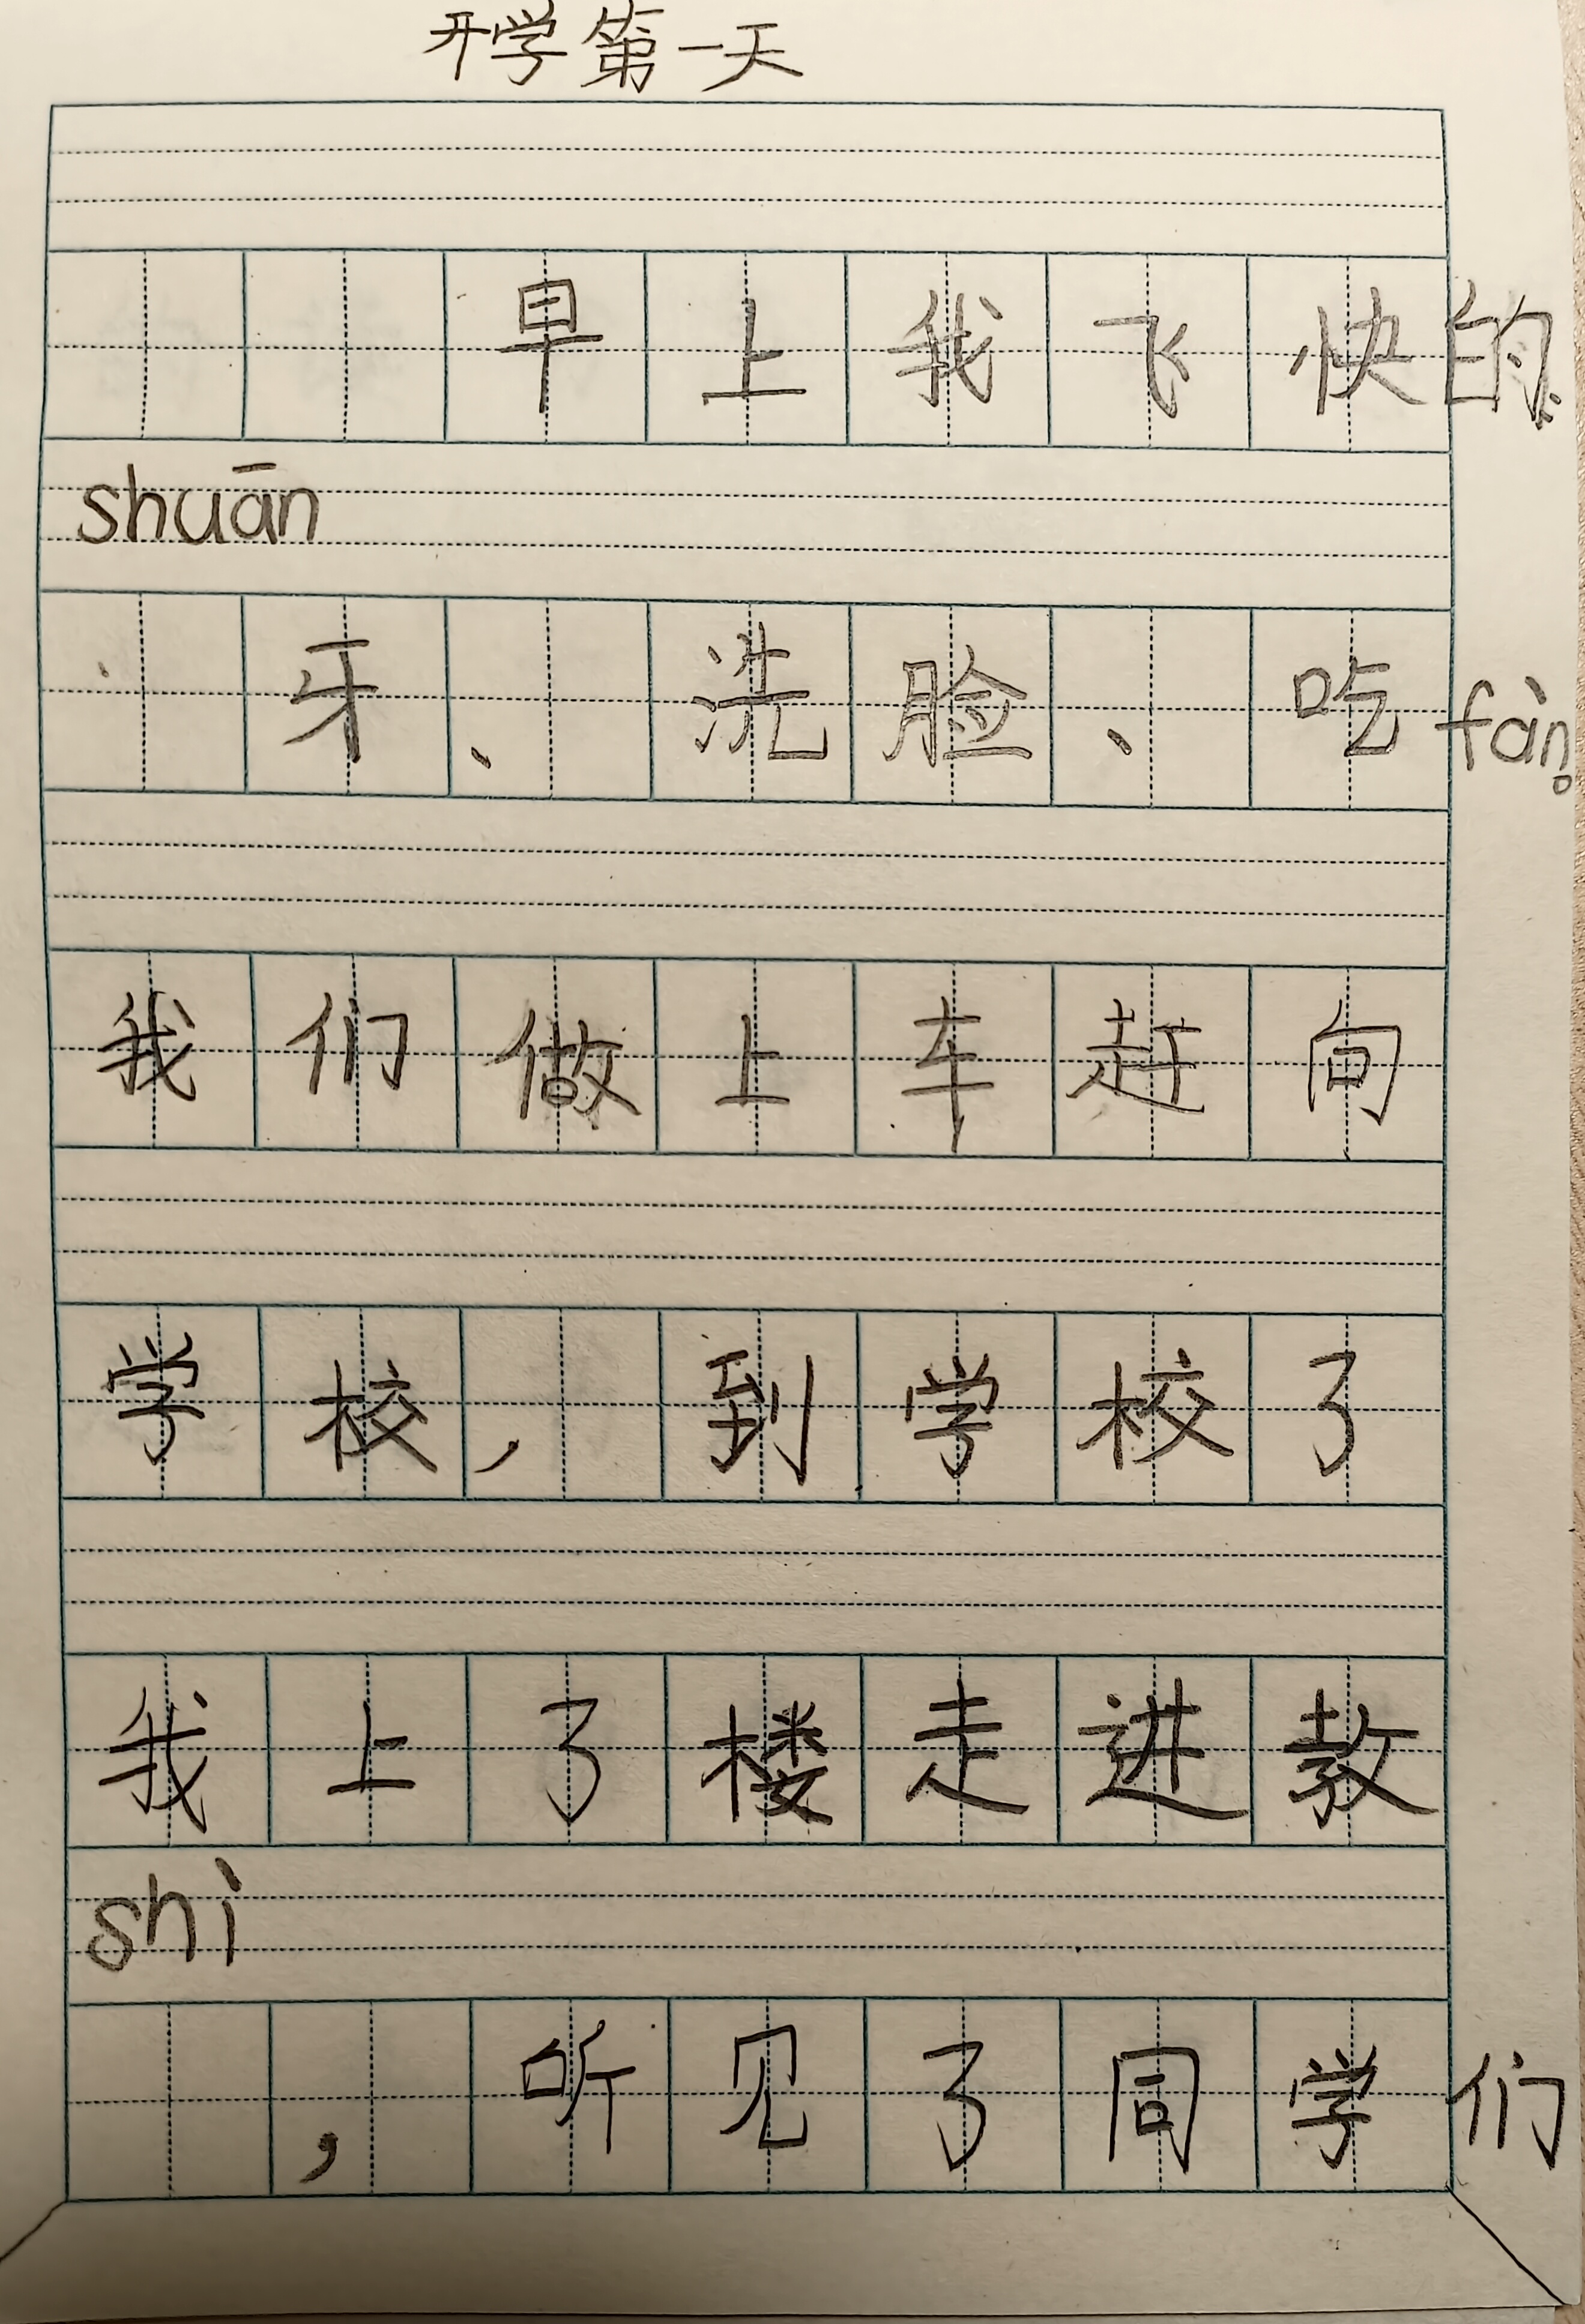 开学第一天
早上我飞快的
shuān
牙、洗脸、吃fàn。
我们做上车赶向
学校,到学校了
我上了楼走进教
shì
,听见了同学们